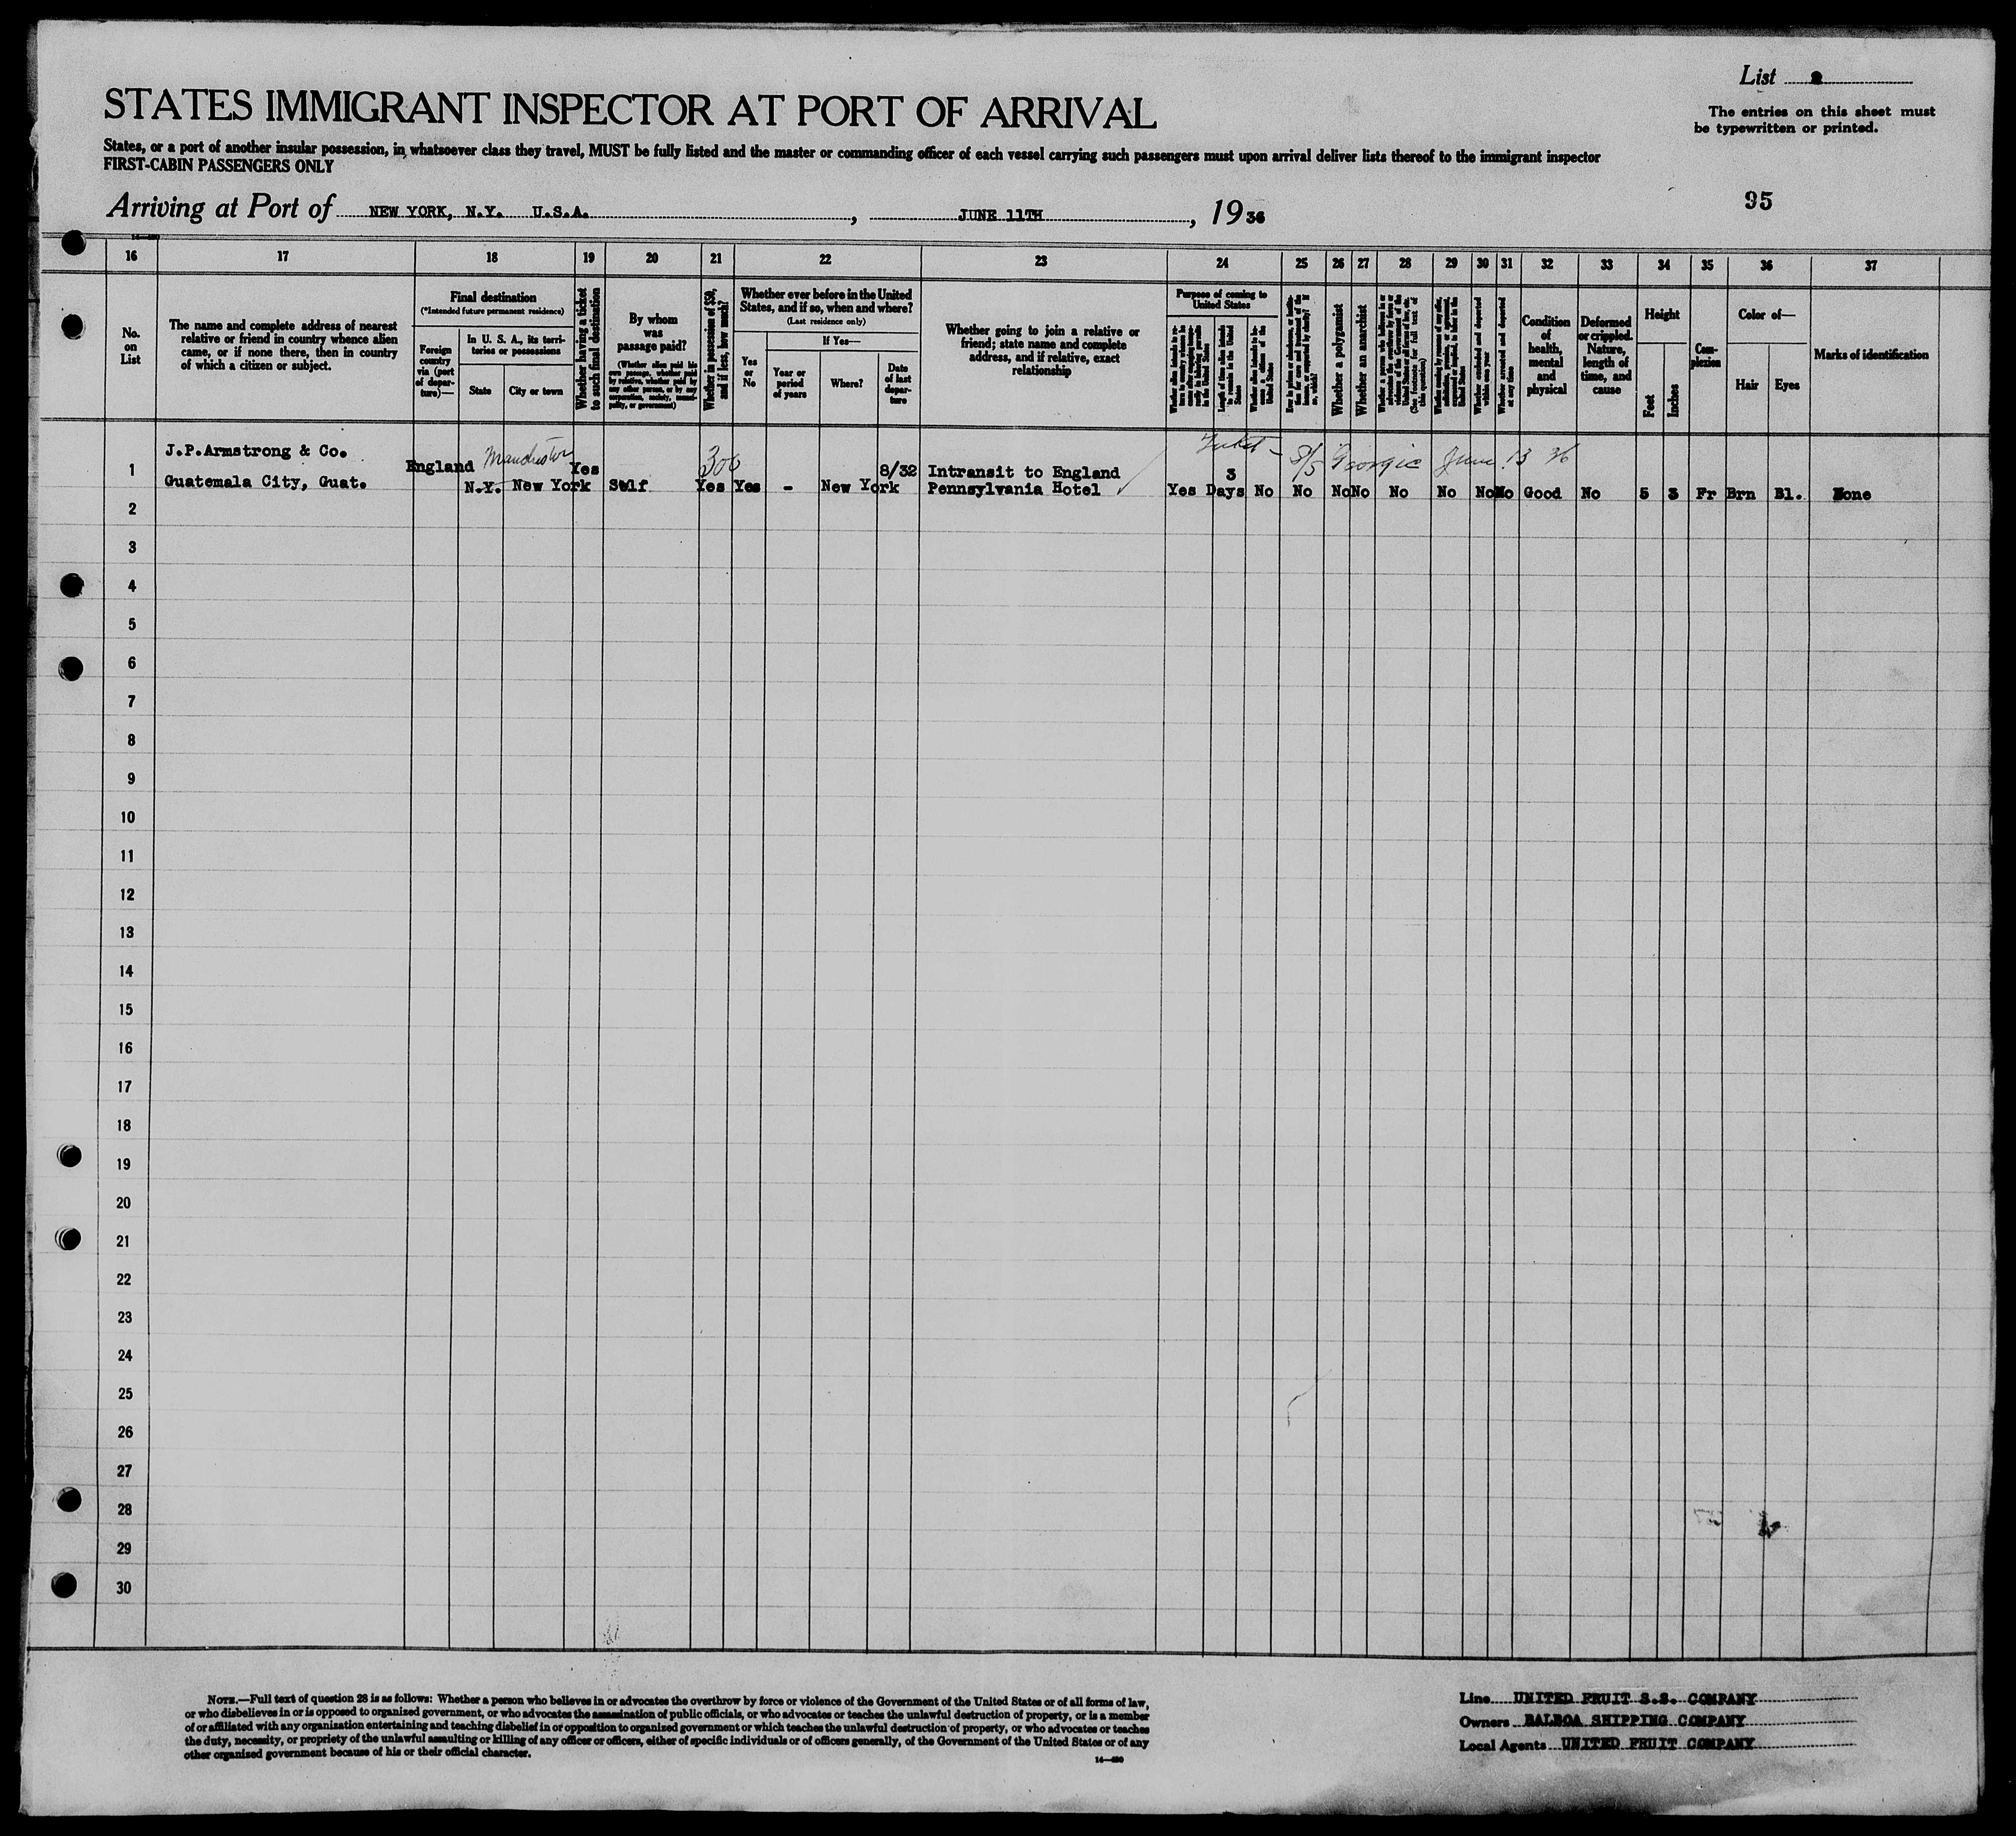 List 2
STATES IMMIGRANT INSPECTOR AT PORT OF ARRIVAL
The entries on this sheet must
be typewritten or printed.
States, or a port of another insular possession, in whatsoever class they travel, MUST be fully listed and the master or commanding officer of each vessel carrying such passengers must upon arrival deliver lists thereof to the immigrant inspector
FIRST-CABIN PASSENGERS ONLY
Arriving at Port of NEW YORK, N.Y. U.S.A. , JUNE 11TH , 1936
95
16 17 18 19 20 21 22 23 24 25 26 27 28 29 30 31 32 33 34 35 36 37
No.
on
List
The name and complete address of nearest
relative or friend in country whence alien
came, or if none there, then in country
of which a citizen or subject.
Final destination
(*Intended future permanent residence)
Foreign
country
via (port
of depar-
ture)—
In U. S. A., its terri-
tories or possessions
State
City or town
Whether having a ticket
to such final destination
By whom
was
passage paid?
(Whether alien paid his
own passage, whether paid
by relative, whether paid by
any other person, or by any
corporation, society, munici-
pality, or government)
Whether in possession of $50,
and if less, how much?
Whether ever before in the United
States, and if so, when and where?
(Last residence only)
Yes
or
No
If Yes—
Year or
period
of years
Where?
Date
of last
depar-
ture
Whether going to join a relative or
friend; state name and complete
address, and if relative, exact
relationship
Purpose of coming to
United States
Length of time alien intends
to remain in the United
States
Whether alien intends to be-
come a citizen of the
United States
Whether a polygamist
Whether an anarchist
Whether arrested and deported
at any time
Condition
of
health,
mental
and
physical
Deformed
or crippled.
Nature,
length of
time, and
cause
Height
Feet
Inches
Com-
plexion
Color of—
Hair
Eyes
Marks of identification
J.P.Armstrong & Co.
Guatemala City, Guat.
England Manchester Yes
N.Y. New York Self
300
Yes Yes - New York 8/32
Intransit to England
Pennsylvania Hotel
Georgic June 13 36
Yes 3 Days No No No No No No No No Good No 5 3 Fr Brn Bl. None
1
2
3
4
5
6
7
8
9
10
11
12
13
14
15
16
17
18
19
20
21
22
23
24
25
26
27
28
29
30
NOTE.—Full text of question 28 is as follows: Whether a person who believes in or advocates the overthrow by force or violence of the Government of the United States or of all forms of law,
or who disbelieves in or is opposed to organized government, or who advocates the assassination of public officials, or who advocates or teaches the unlawful destruction of property, or is a member
of or affiliated with any organization entertaining and teaching disbelief in or opposition to organized government or which teaches the unlawful destruction of property, or who advocates or teaches
the duty, necessity, or propriety of the unlawful assaulting or killing of any officer or officers, either of specific individuals or of officers generally, of the Government of the United States or of any
other organized government because of his or their official character.
Line UNITED FRUIT S.S. COMPANY
Owners BALBOA SHIPPING COMPANY
Local Agents UNITED FRUIT COMPANY